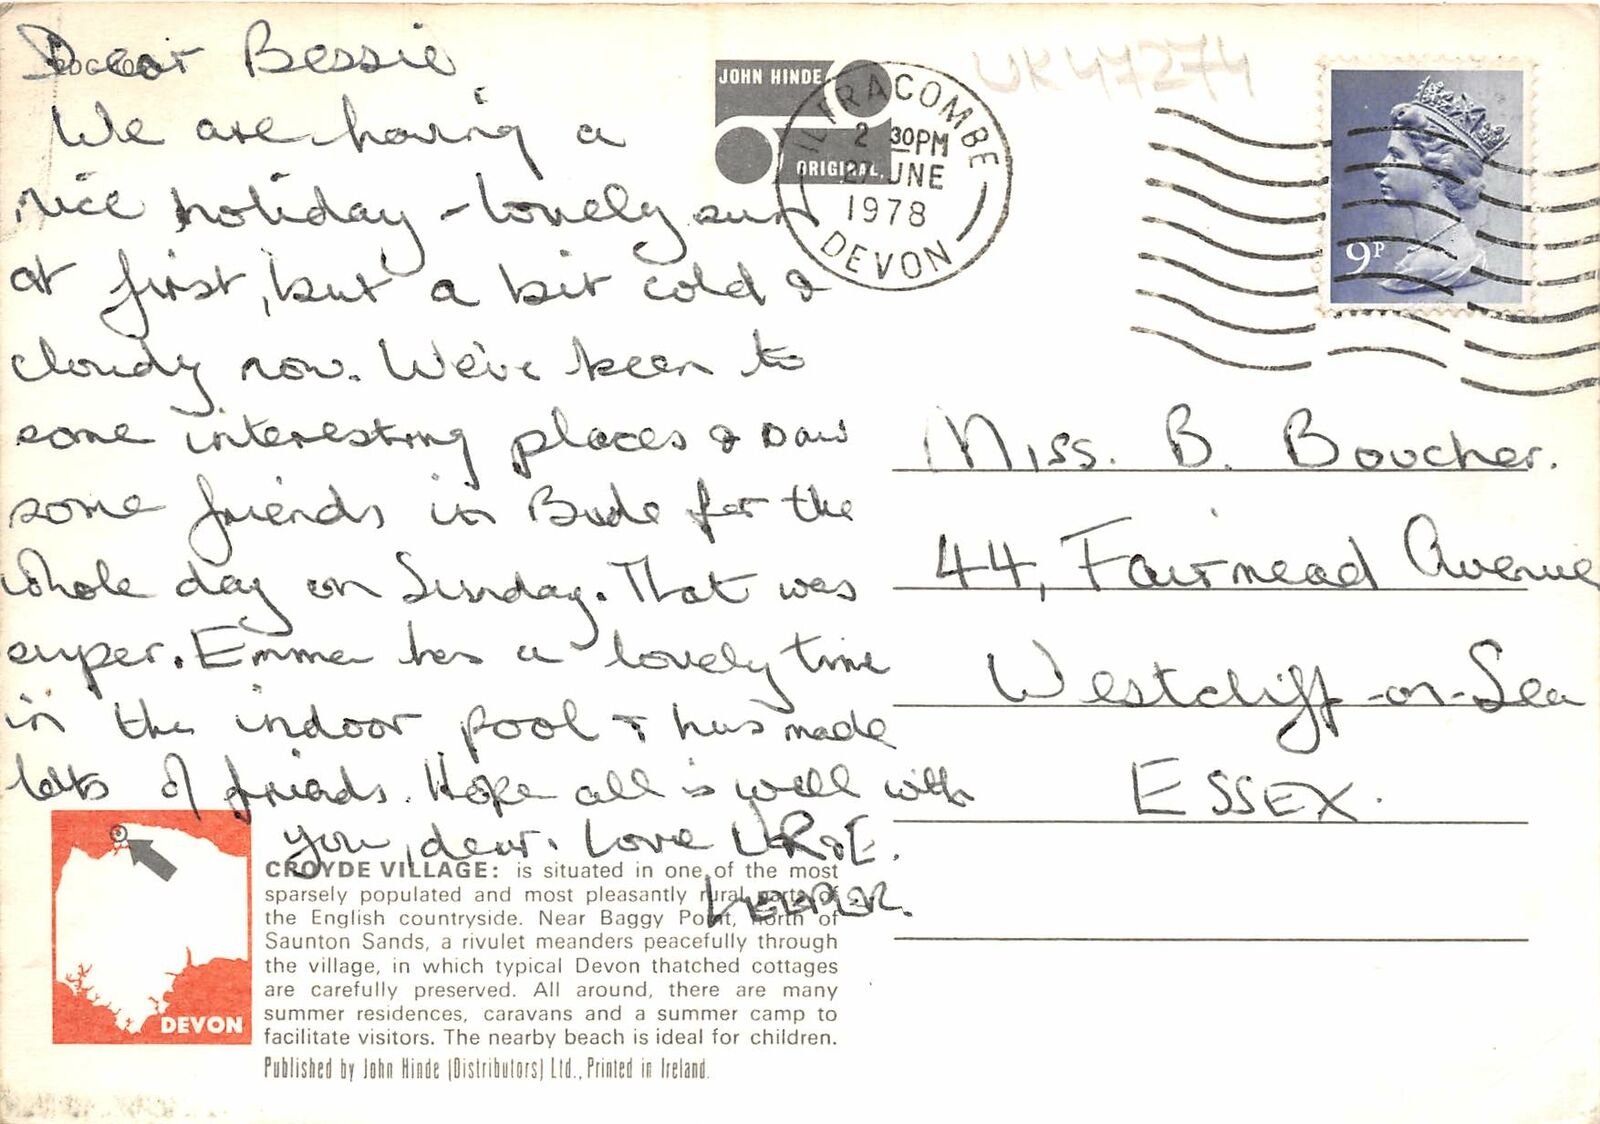 Dear Bessie
We are having a
nice holiday - lovely sun
at first, but a bit cold &
cloudy now. We've been to
some interesting places & saw
some friends in Bude for the
whole day on Sunday. That was
super. Emma has a lovely time
in the indoor pool & has made
lots of friends. Hope all is well with
you, dear. Love
JOHN HINDE
ORIGINAL
ILFRACOMBE
2 30PM
27 JNE
1978
DEVON
UK47274
9P
Miss. B. Boucher.
44, Fairmead Avenue
Westcliff-on-Sea
ESSEX.
DEVON
CROYDE VILLAGE: is situated in one of the most
sparsely populated and most pleasantly rural parts of
the English countryside. Near Baggy Point, north of
Saunton Sands, a rivulet meanders peacefully through
the village, in which typical Devon thatched cottages
are carefully preserved. All around, there are many
summer residences, caravans and a summer camp to
facilitate visitors. The nearby beach is ideal for children.
Published by John Hinde (Distributors) Ltd., Printed in Ireland.